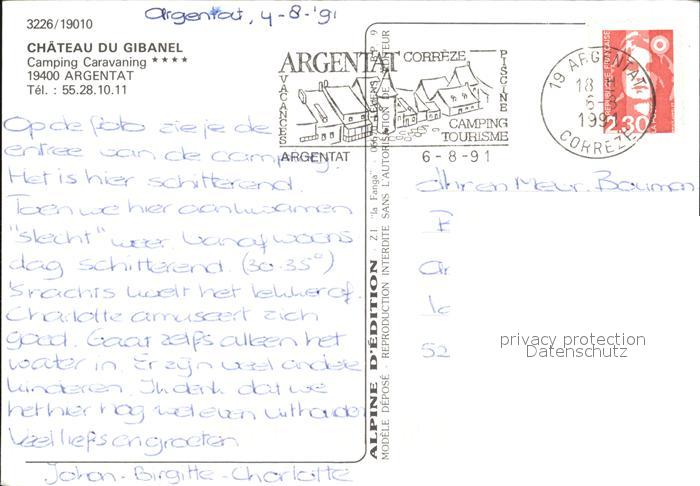 Argentat, 4-8-'91
3226/19010
CHÂTEAU DU GIBANEL
Camping Caravaning ★★★★
19400 ARGENTAT
Tél. : 55.28.10.11
Op de foto zie je de
entree van de camping.
Het is hier schitterend.
Toen we hier aankwamen
"slecht" weer. Vanaf woens
dag schitterend. (30-35°)
's nachts koelt het lekker af.
Charlotte amuseert zich
goed. Gaat zelfs alleen het
water in. Er zijn veel andere
kinderen. Ik denk dat we
het hier nog wel even uithouden
Veel liefs en groeten
Johan - Birgitte - Charlotte
ARGENTAT CORRÈZE
VACANCES
PISCINE
CAMPING
TOURISME
ARGENTAT
6-8-91
19 ARGENTAT
18 H
6-8
1991
CORREZE
REPUBLIQUE FRANÇAISE
2,30
ALPINE D'ÉDITION - Z.I. "la Fanga"
MODÈLE DÉPOSÉ - REPRODUCTION INTERDITE SANS L'AUTORISATION DE L'ÉDITEUR
Mevr. Bouman
52
privacy protection
Datenschutz